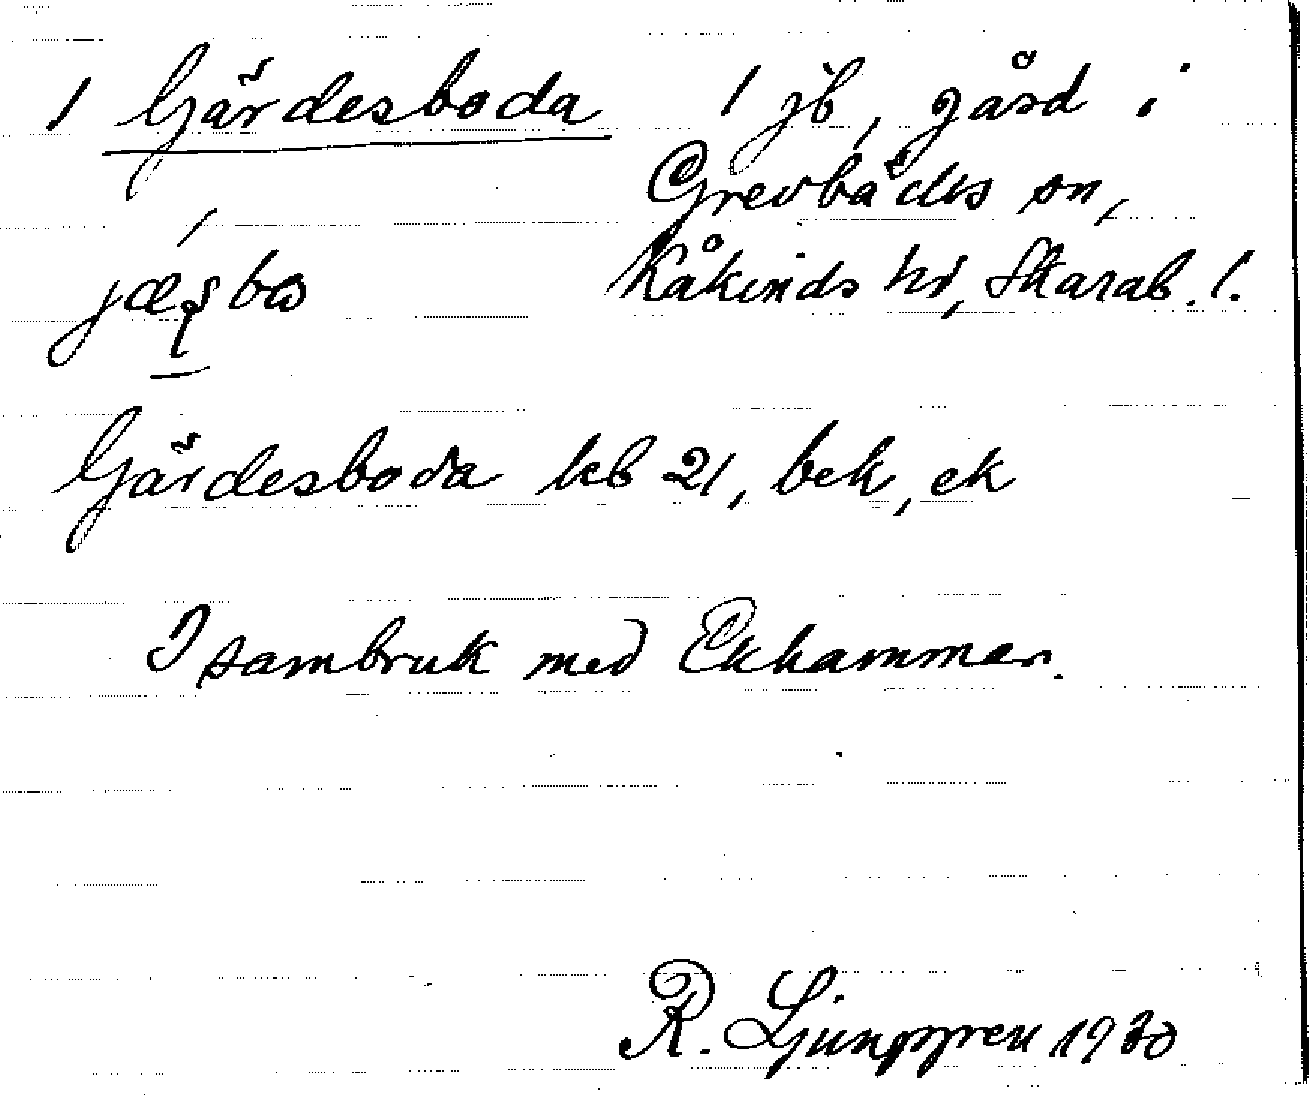 1 Gärdesboda 1 jb, gård i
Grevbäcks sn,
Kåkinds hd, Skarab. l.
Gärdesboda kb 21, bek, ek
I sambruk med Ekhammar.
R. Ljunggren 1930